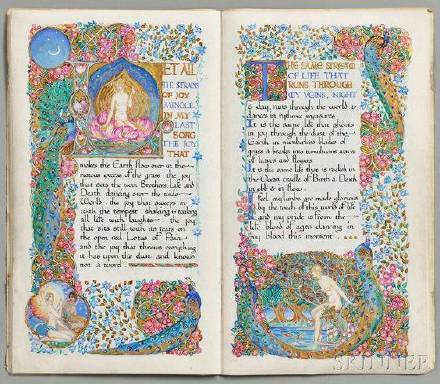 LET ALL
THE STRAINS
OF JOY
MINGLE
IN MY
LAST
SONG
THE JOY
THAT
makes the Earth flow over in the
riotous excess of the grass the joy
that sets the twin Brothers Life and
Death dancing over the wide
World the joy that sweeps in
with the tempest shaking & waking
all life with laughter the joy
that sits still with its tears on
the open red Lotus of Pain
and the joy that throws everything
it has upon the dust and knows
not a word
THE SAME STREAM
OF LIFE THAT
RUNS THROUGH
MY VEINS, NIGHT
& day, runs through the world &
dances in rythmic measures
It is the same life that shoots
in joy through the dust of the
Earth in numberless blades of
grass & breaks into tumultuous waves
of leaves and flowers
It is the same life that is rocked in
the Ocean cradle of Birth & Death
in ebb & in flow
I feel my limbs are made glorious
by the touch of this world of life
and my pride is from the
life blood of ages dancing in
my blood this moment
SKINNER